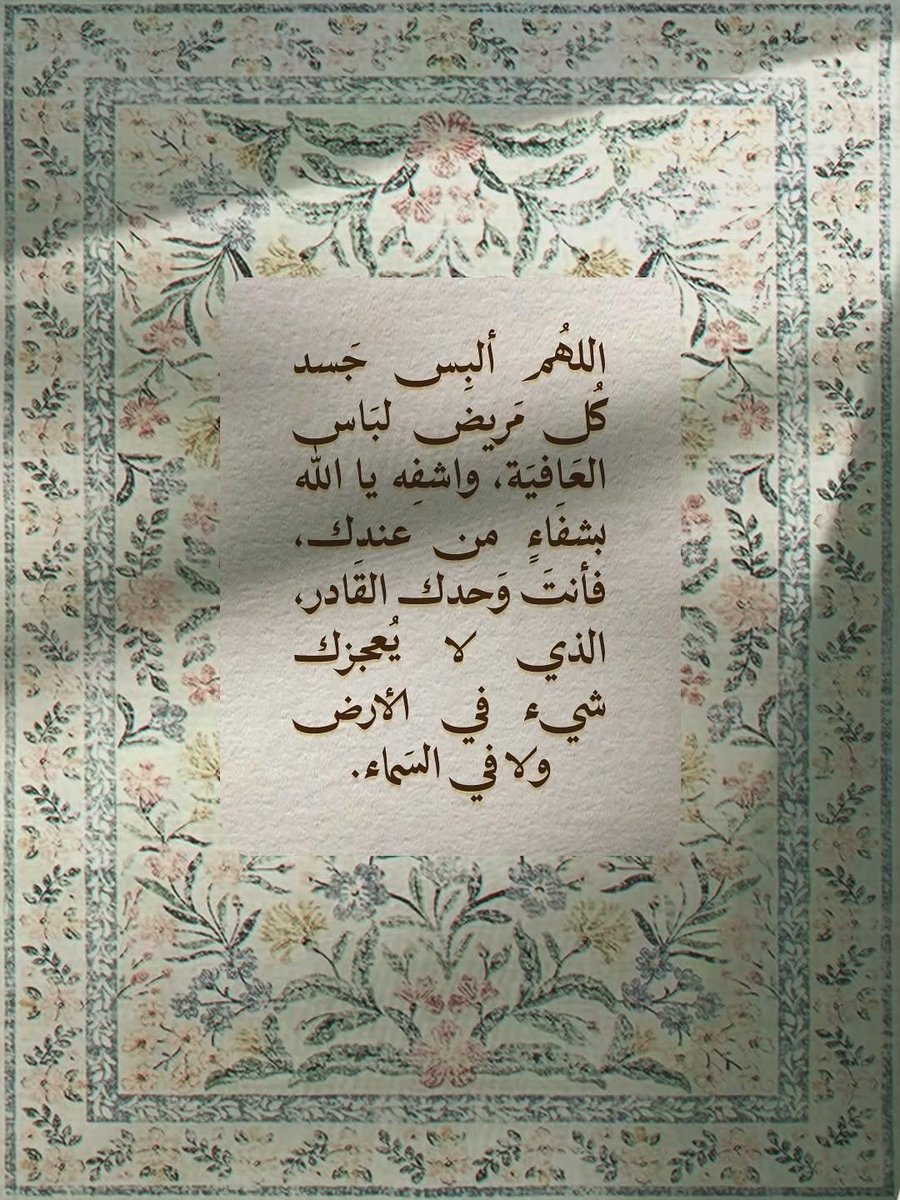 اللهُم ألبِس جَسد
كُل مَريض لبَاس
العَافيَة، واشفِه يا الله
بشفَاءٍ من عندك،
فأنتَ وَحدك القَادر،
الذي لا يُعجزك
شيء في الأرض
ولا في السَماء.